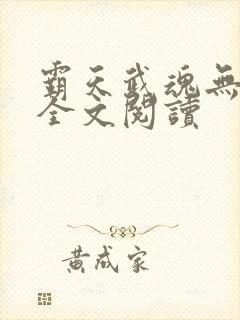 霸天武魂無
全文閱讀
黃成家